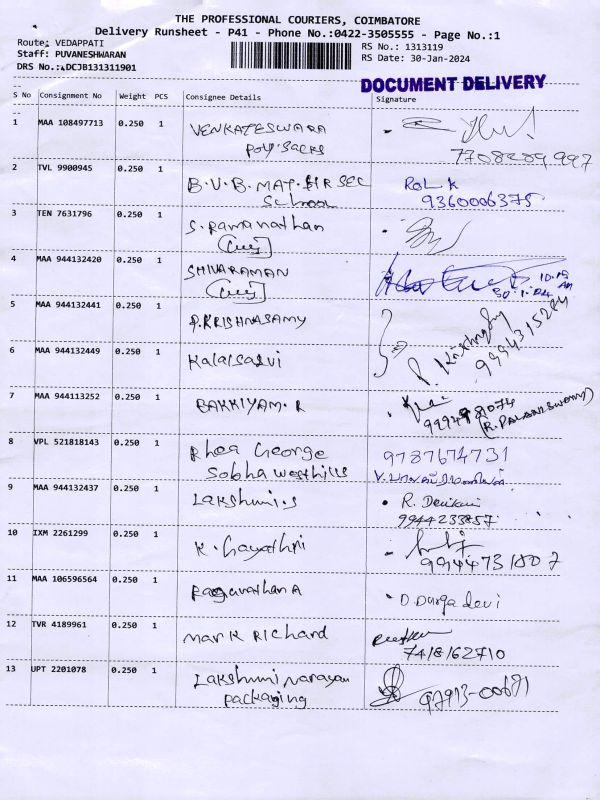 THE PROFESSIONAL COURIERS, COIMBATORE
Delivery Runsheet - P41 - Phone No.:0422-3505555 - Page No.:1
Route: VEDAPPATI
RS No.: 1313119
Staff: PUVANESHWARAN
RS Date: 30-Jan-2024
DRS No.:DCJB131311901
DOCUMENT DELIVERY
S No Consignment No Weight PCS Consignee Details Signature
1 MAA 108497713 0.250 1 VENKATESWARA
Poly Sacks
2 TVL 9900945 0.250 1 B.V.B. MAT. HR SEC
School
9360006375
3 TEN 7631796 0.250 1 S. Ramanathan
4 MAA 944132420 0.250 1 SHIVARAMAN
10.19 AM
5 MAA 944132441 0.250 1 P. KRISHNASAMY
9994315284
6 MAA 944132449 0.250 1 Kalaiselvi
7 MAA 944113252 0.250 1 BAKKIYAM. R
(R. PALANISWAMY)
8 VPL 521818143 0.250 1 Rhea George 9787674731
Sobha westhills
9 MAA 944132437 0.250 1 Lakshmi.S R. Devikani
9944233857
10 IXM 2261299 0.250 1 K. Gayathri
9944731807
11 MAA 106596564 0.250 1 Ragunathan A D. Durga devi
12 TVR 4189961 0.250 1 Mark Richard
7418162710
13 UPT 2201078 0.250 1 Lakshmi Narayan
Packaging
97913-00671